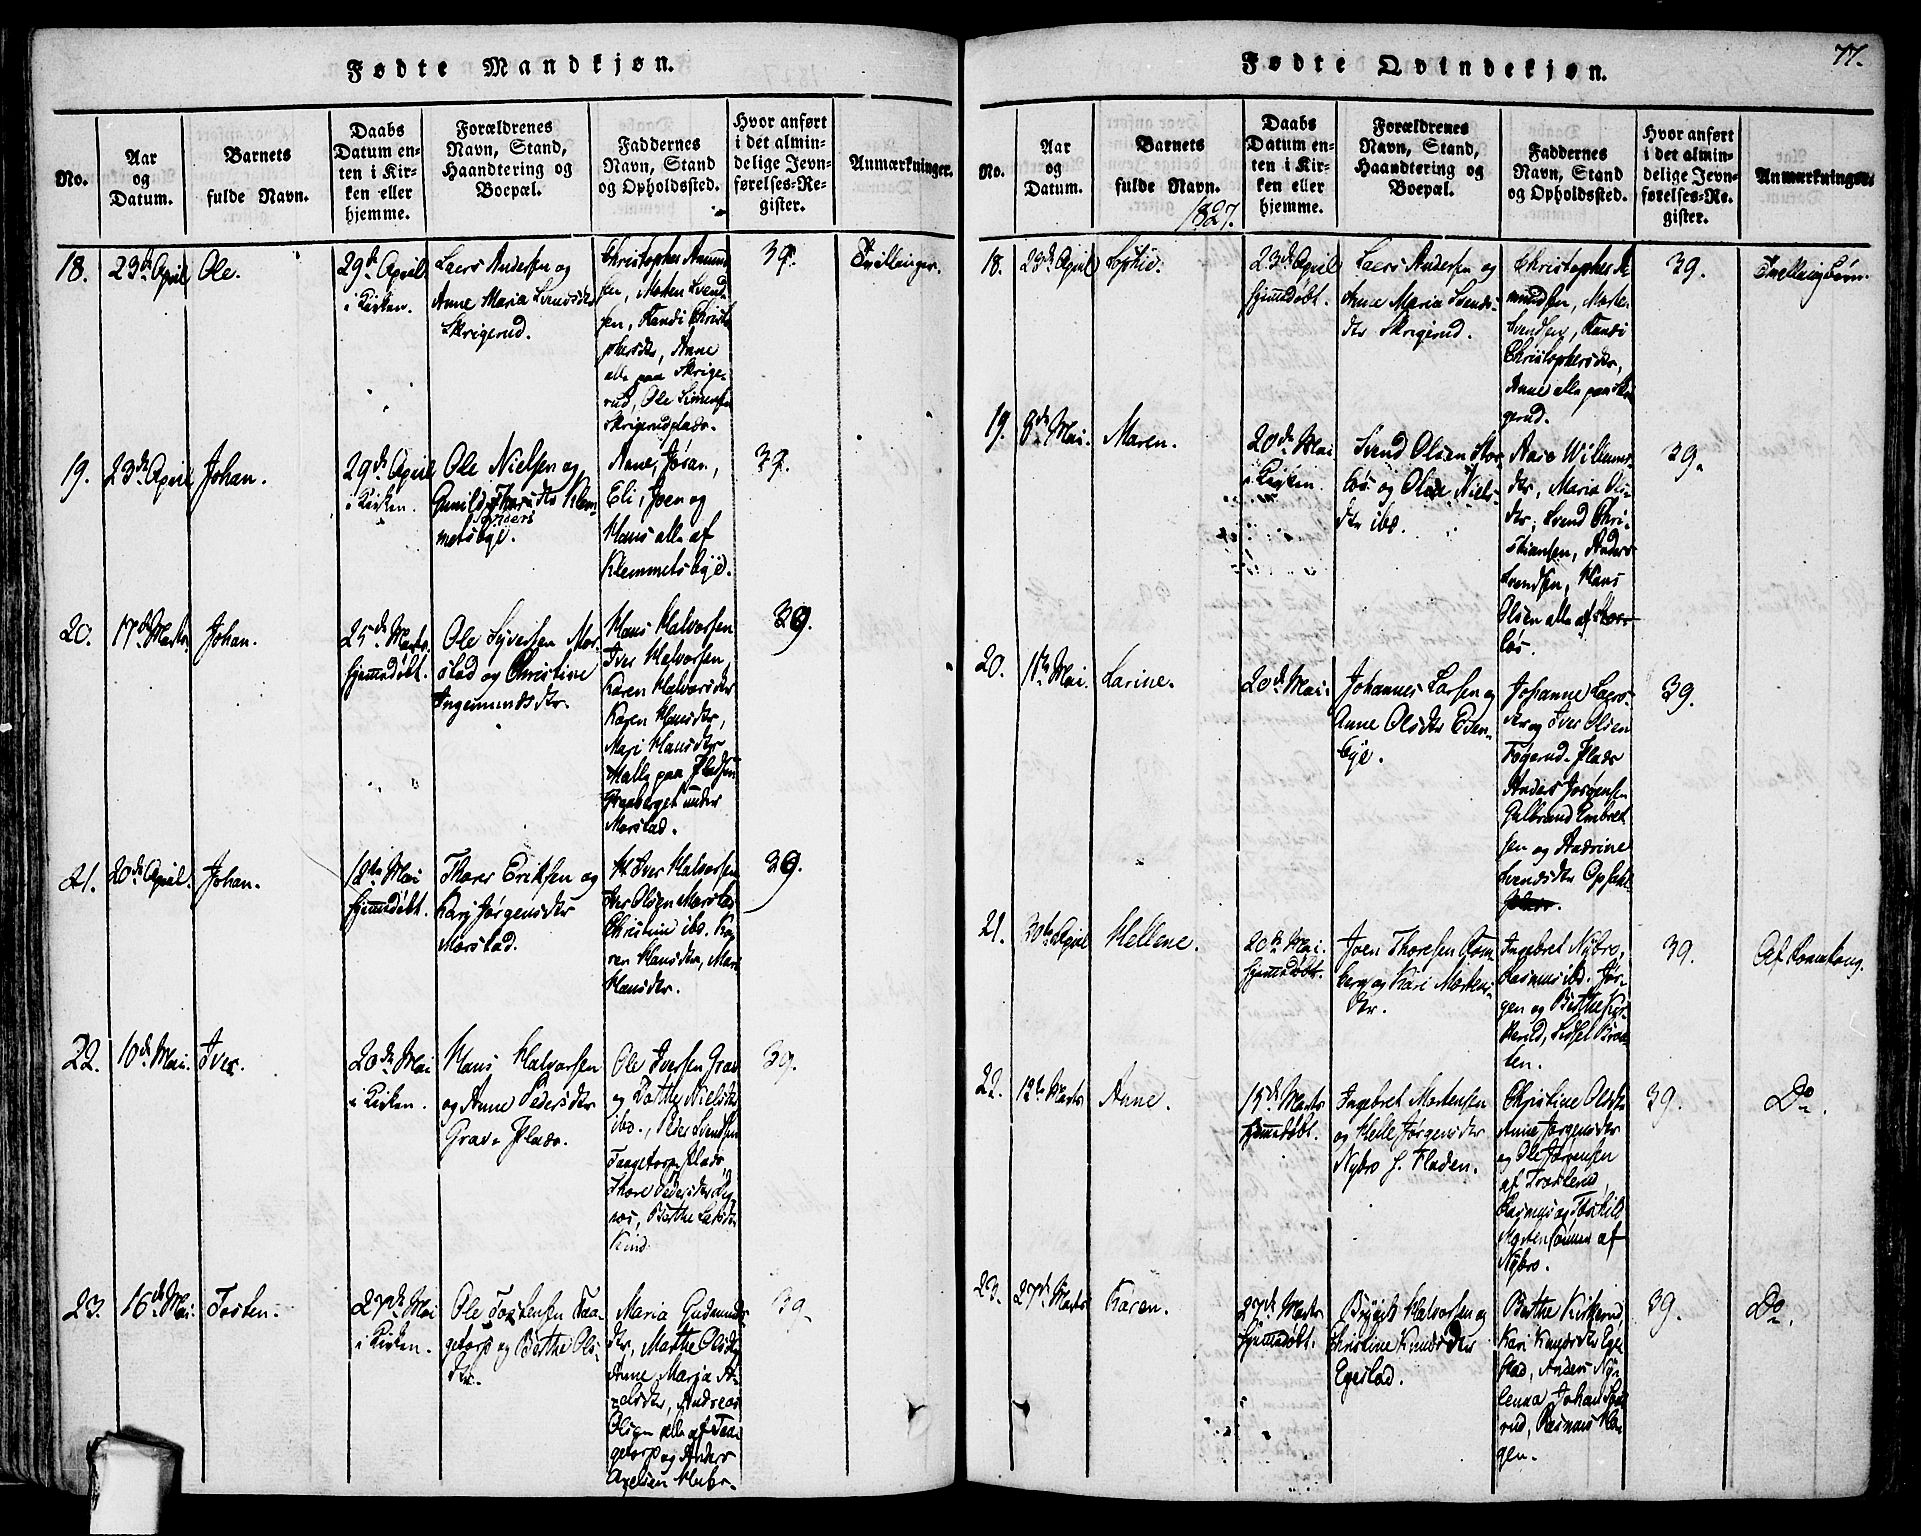 Fødte Mandkjøn.
No.
Aar
og
Datum.
Barnets
fulde Navn.
Daabs
Datum en-
ten i Kir-
ken eller
hjemme.
Forældrenes
Navn, Stand,
Haandtering og
Boepæl.
Faddernes
Navn, Stand
og Opholdssted.
Hvor anført
i det almin-
delige Jevn-
førelses-Re-
gister.
Anmærkninger.
18.
23de April
Ole.
29de April
i Kirken.
Laers Andersen og
Anne Maria Svensdtr
Skrigerud.
Christopher Amund-
sen, Morten Svend-
sen, Randi Christo-
phersdtr, Anne
alle paa Skrige-
rud, Ole Simensen
Skrigerudplads.
39.
Tvillinger.
19.
23de April
Johan.
29de April
i Kirken.
Ole Nielsen og
Gunild Thorsdtr Klem-
metsbye.
Anne, Jøran,
Eli, Joen og
Hans alle af
Klemmetsbye.
39.
20.
17de Marts
Johan.
25de Marts
hjemmedøbt.
Ole Syversen Mor-
stad og Christine
Ingemundsdtr.
Hans Halvorsen
Iver Halvorsen,
Karen Halvorsdtr
Karen Hansdtr,
Mari Hansdtr
alle paa Pladsen
Graaberget under
Morstad.
39.
21.
20de April.
Johan.
12te Mai
hjemmedøbt.
Thores Eriksen og
Kari Jørgensdtr
Morstad.
Iver Halvorsen
Iver Olsen Morstad
Christine ibd. Ka-
ren Hansdtr, Mari
Hansdtr.
39.
22.
10de Mai.
Iver.
20de Mai
i Kirken.
Hans Halvorsen
og Anne Pedersdtr
Grav-Plads.
Ole Iversen Grav
og Dorthe Nielsdtr
ibd., Peder Svendsen
Taagetorp plads,
Thore Pedersdtr
Berthe Larsdtr
Kind.
39.
23.
16de Mai.
Tosten.
27de Mai
i Kirken.
Ole Tostensen Taa-
getorp og Berthe Ols-
dtr.
Maria Gudmunds-
dtr, Marthe Olsdtr
Anne Maria A-
xelsdtr, Andreas
Olsen alle af Taa-
getorp og Anders
Axelsen Huber.
39.
77.
Fødte Qvindekjøn.
No.
Aar
og
Datum.
Barnets
fulde Navn.
1827.
Daabs
Datum en-
ten i Kir-
ken eller
hjemme.
Forældrenes
Navn, Stand,
Haandtering og
Boepæl.
Faddernes
Navn, Stand
og Opholdssted.
Hvor anført
i det almin-
delige Jevn-
førelses-Re-
gister.
Anmærkninger.
18.
23de April
Sophie.
23de April
hjemmedøbt.
Laers Andersen og
Anne Maria Svends-
dtr Skrigerud.
Christopher A-
mundsen, Morten
Svendsen, Randi
Christophersdtr,
Anne alle paa Skri-
gerud.
39.
Tvellingbørn.
19.
8de Mai.
Maren.
20de Mai
i Kirken.
Svend Olsen Stor-
løs og Olea Niels-
dtr ibd.
Aase Willums-
dtr, Maria Ols-
dtr, Svend Chri-
stiansen, Anders
Svendsen, Hans
Olsen alle af Stor-
løs.
39.
20.
11te Mai.
Larine.
20de Mai.
Johannes Larsen og
Anne Olsdtr Even-
bye.
Johanne Laers-
dtr og Iver Olsen
Fogerud-Plads
Anders Jørgensen
Gulbrand Embret-
sen og Andrine
Svendsdtr Opsahl
39.
21.
30te April
Hellene.
20de Mai.
hjemmedøbt.
Joen Thoresen Rom-
berg og Kari Mortens-
dtr.
Ingebret Nybro,
Rasmus ibd. Jør-
gen og Berthe Kir-
kerud, Sidsel Braa-
ten.
39.
Af Romskoug.
22.
12te Marts
Anne.
15de Marts
hjemmedøbt.
Ingebret Mortensen
og Helle Jørgensdtr
Nybro
Christine Olsdtr
Anne Jørgensdtr
og Ole Jørgensen
af Trosterud,
Rasmus og Torkild
Mortensønner af
Nybro.
39.
Do.
23.
27de Marts
Karen.
27de Marts
hjemmedøbt.
Brynild Halvorsen og
Christine Knudsdtr
Egestad.
Berthe Kirkerud,
Kari Knudsdtr Ege-
stad, Anders
Johan
rud, Rasmus Ha-
gen.
39.
Do.